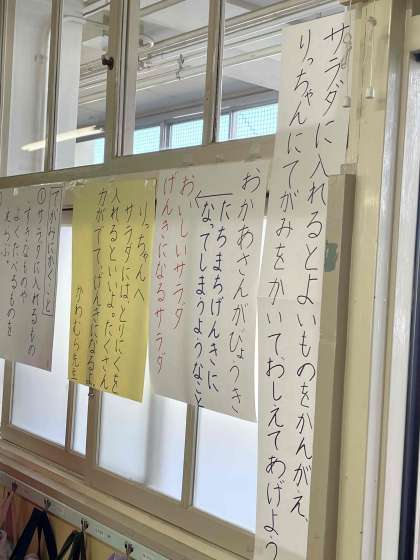 サラダに入れるとよいものをかんがえ、
りっちゃんにてがみをかいて、おしえてあげよう
おかあさんがびょうき
たちまちげんきに
なってしまうようなこと
おいしいサラダ
げんきになるサラダ
りっちゃんへ
サラダには、とりにくを
入れるといいよ。たくさん
力がでて、げんきになるよ。
かわむら先生
てがみにかくこと
①サラダに入れるもの
すきなものや
よくたべるものを
えらぶ。